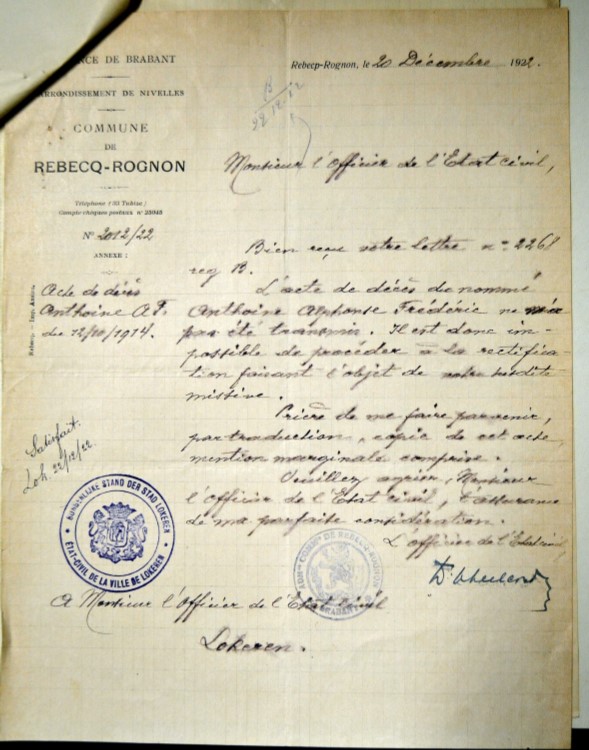 NCE DE BRABANT
RRONDISSEMENT DE NIVELLES
COMMUNE
DE
REBECQ-ROGNON
Téléphone : 51 Tubize
Compte chèques postaux n° 25948
N° 2012/22
ANNEXE :
Acte de décès
Anthoine A.F.
du 12/10/1914.
Rebecq. — Imp. Anica.
Satisfait.
Lok. 22/12/22
Rebecq-Rognon, le 20 Décembre 1922.
B
22-12-22
Monsieur l'Officier de l'Etat civil,
Bien reçu votre lettre n° 2268
reg B.
L'acte de décès du nommé
Anthoine Alphonse Frédéric ne m'a
pas été transmis. Il est donc im-
possible de procéder à la rectifica-
tion faisant l'objet de votre susdite
missive.
Prière de me faire parvenir,
par traduction, copie de cet acte
mention marginale comprise.
Veuillez agréer, Monsieur
l'Officier de l'Etat civil, l'assurance
de ma parfaite considération.
L'officier de l'Etat civil,
BURGERLIJKE STAND DER STAD LOKEREN
ETAT-CIVIL DE LA VILLE DE LOKEREN
ADMON COMMLE DE REBECQ-ROGNON
BRABANT
A Monsieur l'Officier de l'Etat civil
Lokeren.